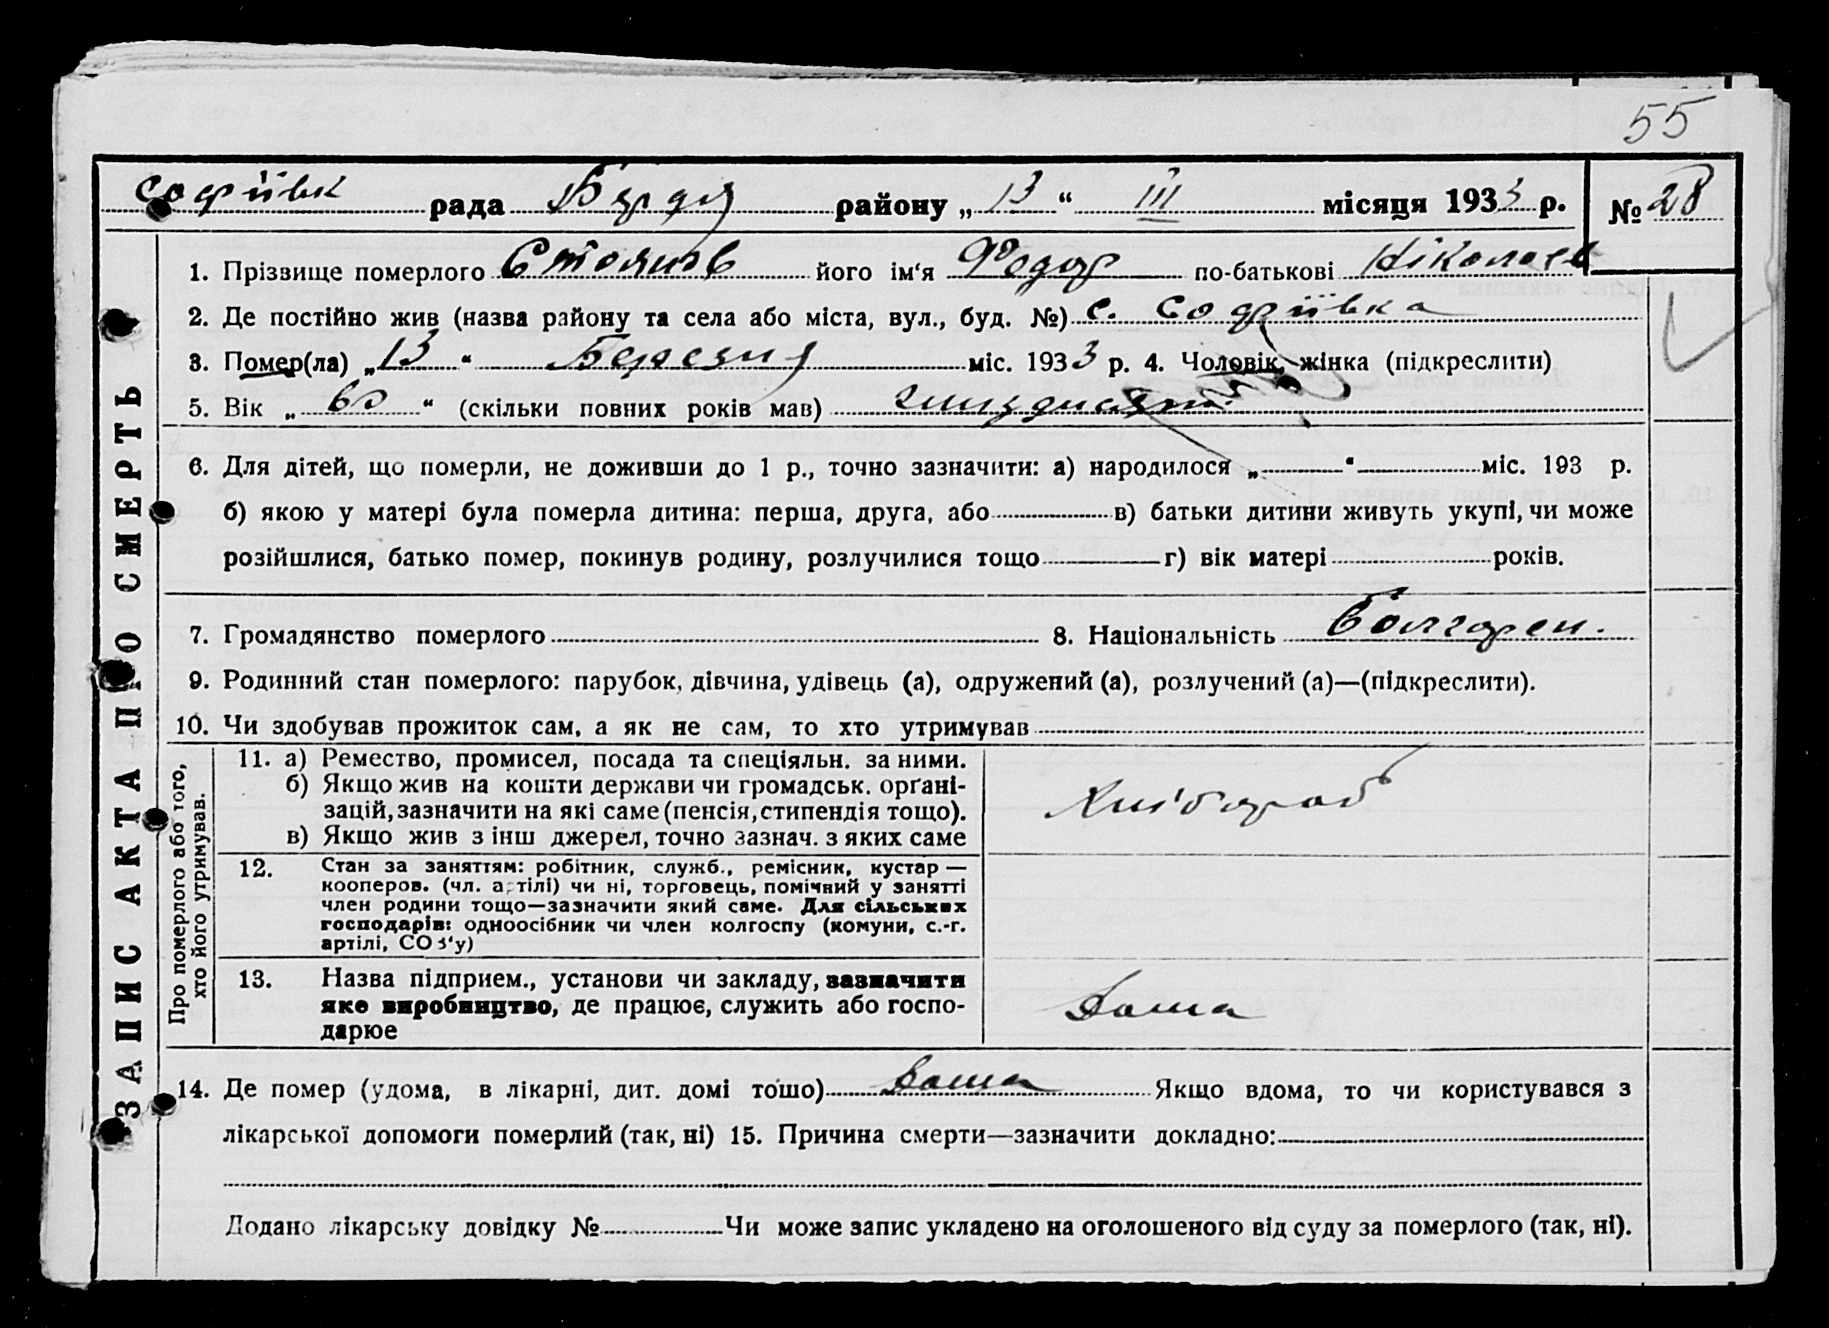 55
Софіївк рада Бердя району „ 13 “ III місяця 1933 р. № 28
1. Прізвище померлого Стоянов його ім‘я Федор по-батькові Ніколаев
2. Де постійно жив (назва району та села або міста, вул., буд. №) с. Софіївка
3. Помер(ла) „ 13 “ Березня міс. 1933 р. 4. Чоловік, жінка (підкреслити)
5. Вік „ 60 “ (скільки повних років мав)
6. Для дітей, що померли, не доживши до 1 р., точно зазначити: а) народилося „ “ міс. 193 р.
б) якою у матері була померла дитина: перша, друга, або в) батьки дитини живуть укупі, чи може
розійшлися, батько помер, покинув родину, розлучилися тощо г) вік матері років.
7. Громадянство померлого 8. Національність болгарен.
9. Родинний стан померлого: парубок, дівчина, удівець (а), одружений (а), розлучений (а)—(підкреслити).
10. Чи здобував прожиток сам, а як не сам, то хто утримував
11. а) Ремество, промисел, посада та спеціяльн. за ними.
б) Якщо жив на кошти держави чи громадськ. органі-
зацій, зазначити на які саме (пенсія, стипендія тощо).
в) Якщо жив з інш джерел, точно зазнач. з яких саме
Хлібороб
12. Стан за заняттям: робітник, служб., ремісник, кустар —
кооперов. (чл. артілі) чи ні, торговець, помічний у занятті
член родини тощо—зазначити який саме. Для сільських
господарів: одноосібник чи член колгоспу (комуни, с.-г.
артілі, СОЗ‘у)
13. Назва підприєм., установи чи закладу, зазначити
яке виробництво, де працює, служить або госпо-
дарює
Дома
14. Де помер (удома, в лікарні, дит. домі тощо) Дома Якщо вдома, то чи користувався з
лікарської допомоги померлий (так, ні) 15. Причина смерти—зазначити докладно:
Додано лікарську довідку № Чи може запис укладено на оголошеного від суду за померлого (так, ні).
ЗАПИС АКТА ПРО СМЕРТЬ
Про померлого або того,
хто його утримував.